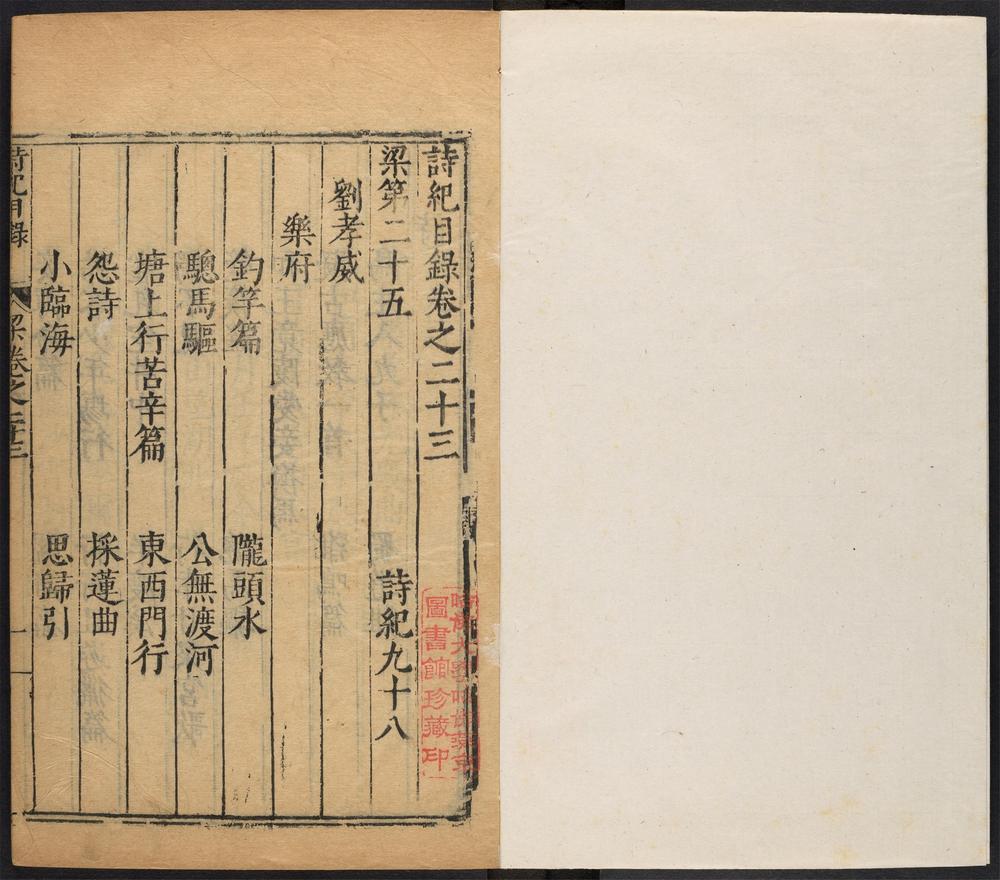 詩紀目錄卷之二十三
梁第二十五 詩紀九十八
劉孝威
樂府
釣竿篇 隴頭水
驄馬驅 公無渡河
塘上行苦辛篇 東西門行
怨詩 採蓮曲
小臨海 思歸引
詩紀目錄 梁卷之二十三 一
哈佛大學哈佛燕京
圖書館珍藏印